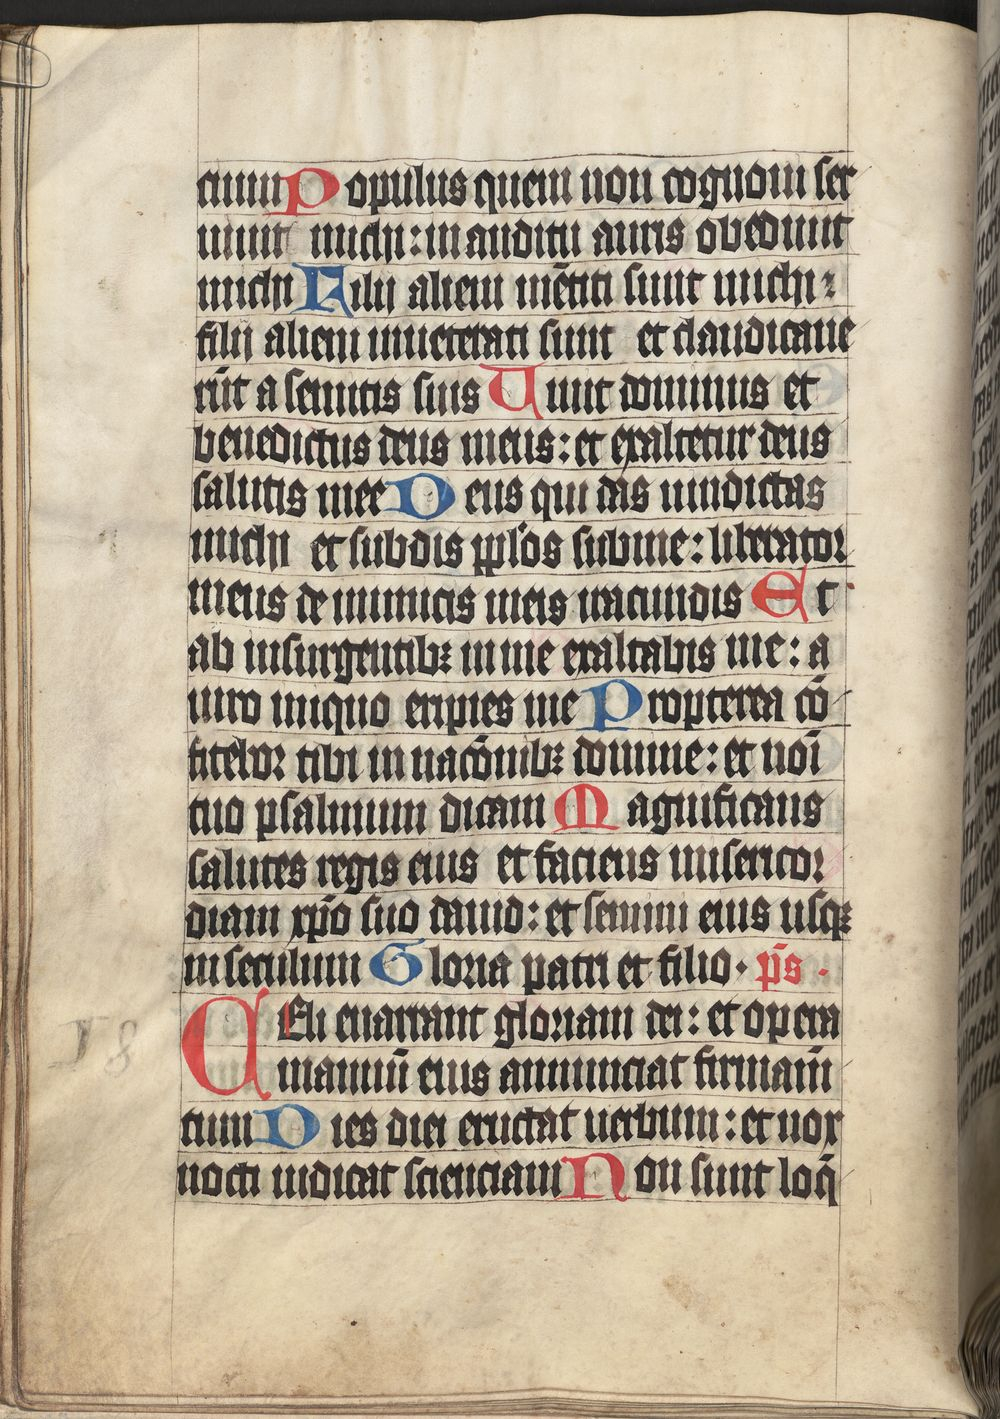 cium Populus quem non cognoui ser
uiuit michi: in auditu auris obediuit
michi Filij alieni mētiti sunt michi:
filij alieni inueterati sunt et claudicaue
rūt a semitis suis Uiuit dominus et
benedictus deus meus: et exaltetur deus
salutis mee Deus qui das uindictas
michi et subdis pplōs sub me: liberator
meus de inimicis meis iracundis Et
ab insurgentibꝫ in me exaltabis me: a
uiro iniquo eripies me Propterea cō
fitebor tibi in nacōnibꝫ domine: et noī
tuo psalmum dicam Magnificans
salutes regis eius et faciens misericor
diam xp̄o suo dauid: et semini eius usqꝫ
in seculum Gloria patri et filio· p̄s ·
Celi enarrant gloriam dei: et opera
manuū eius annunciat firmam̄
tum Dies diei eructat uerbum: et nox
nocti indicat scienciam Non sunt loq̄
18